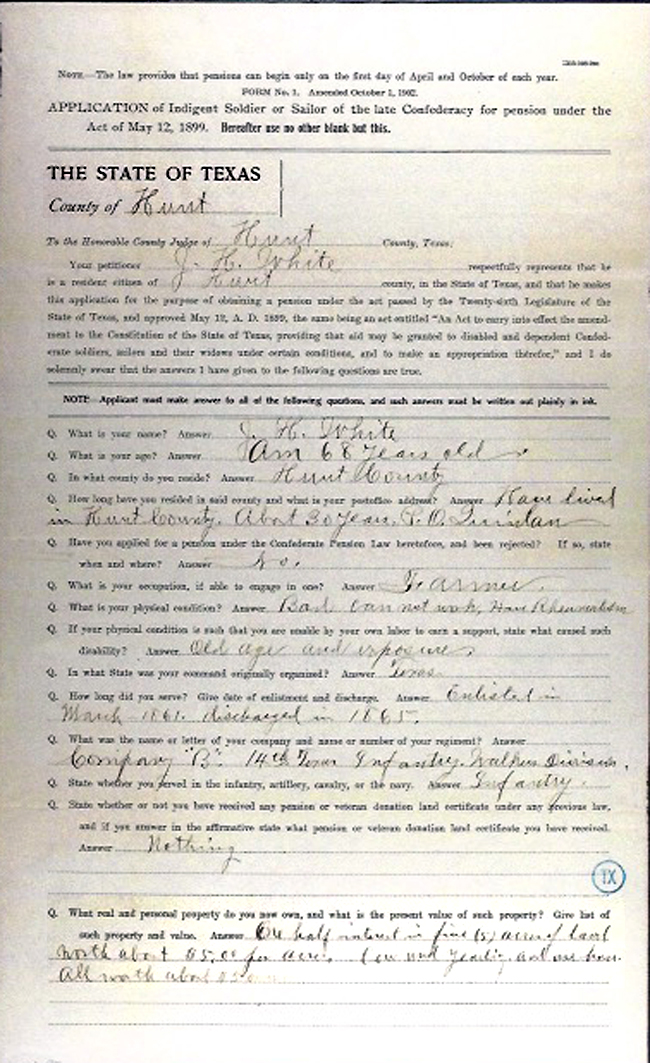 NOTE.—The law provides that pensions can begin only on the first day of April and October of each year.
FORM No. 1. Amended October 1, 1902.
APPLICATION of Indigent Soldier or Sailor of the late Confederacy for pension under the
Act of May 12, 1899. Hereafter use no other blank but this.
THE STATE OF TEXAS
County of Hunt
To the Honorable County Judge of Hunt County, Texas:
Your petitioner J. H. White respectfully represents that he
is a resident citizen of Hunt county, in the State of Texas, and that he makes
this application for the purpose of obtaining a pension under the act passed by the Twenty-sixth Legislature of the
State of Texas, and approved May 12, A. D. 1899, the same being an act entitled "An Act to carry into effect the amend-
ment to the Constitution of the State of Texas, providing that aid may be granted to disabled and dependent Confed-
erate soldiers, sailors and their widows under certain conditions, and to make an appropriation therefor," and I do
solemnly swear that the answers I have given to the following questions are true.
NOTE—Applicant must make answer to all of the following questions, and such answers must be written out plainly in ink.
Q. What is your name? Answer J. H. White
Q. What is your age? Answer Am 68 years old
Q. In what county do you reside? Answer Hunt County
Q. How long have you resided in said county and what is your postoffice address? Answer Have lived
in Hunt County. About 30 years. P. O. Quinlan
Q. Have you applied for a pension under the Confederate Pension Law heretofore, and been rejected? If so, state
when and where? Answer No.
Q. What is your occupation, if able to engage in one? Answer Farmer.
Q. What is your physical condition? Answer Bad can not work, Have Rheumatism
Q. If your physical condition is such that you are unable by your own labor to earn a support, state what caused such
disability? Answer Old age and exposure
Q. In what State was your command originally organized? Answer Texas
Q. How long did you serve? Give date of enlistment and discharge. Answer Enlisted in
March 1861. discharged in 1865.
Q. What was the name or letter of your company and name or number of your regiment? Answer
Company "B" 14th Texas Infantry. Walkers Division.
Q. State whether you served in the infantry, artillery, cavalry, or the navy. Answer Infantry.
Q. State whether or not you have received any pension or veteran donation land certificate under any previous law,
and if you answer in the affirmative state what pension or veteran donation land certificate you have received.
Answer Nothing
IX
Q. What real and personal property do you now own, and what is the present value of such property? Give list of
such property and value. Answer One half interest in five (5) acres of land
Worth about per acre. and yearling and one
All worth about